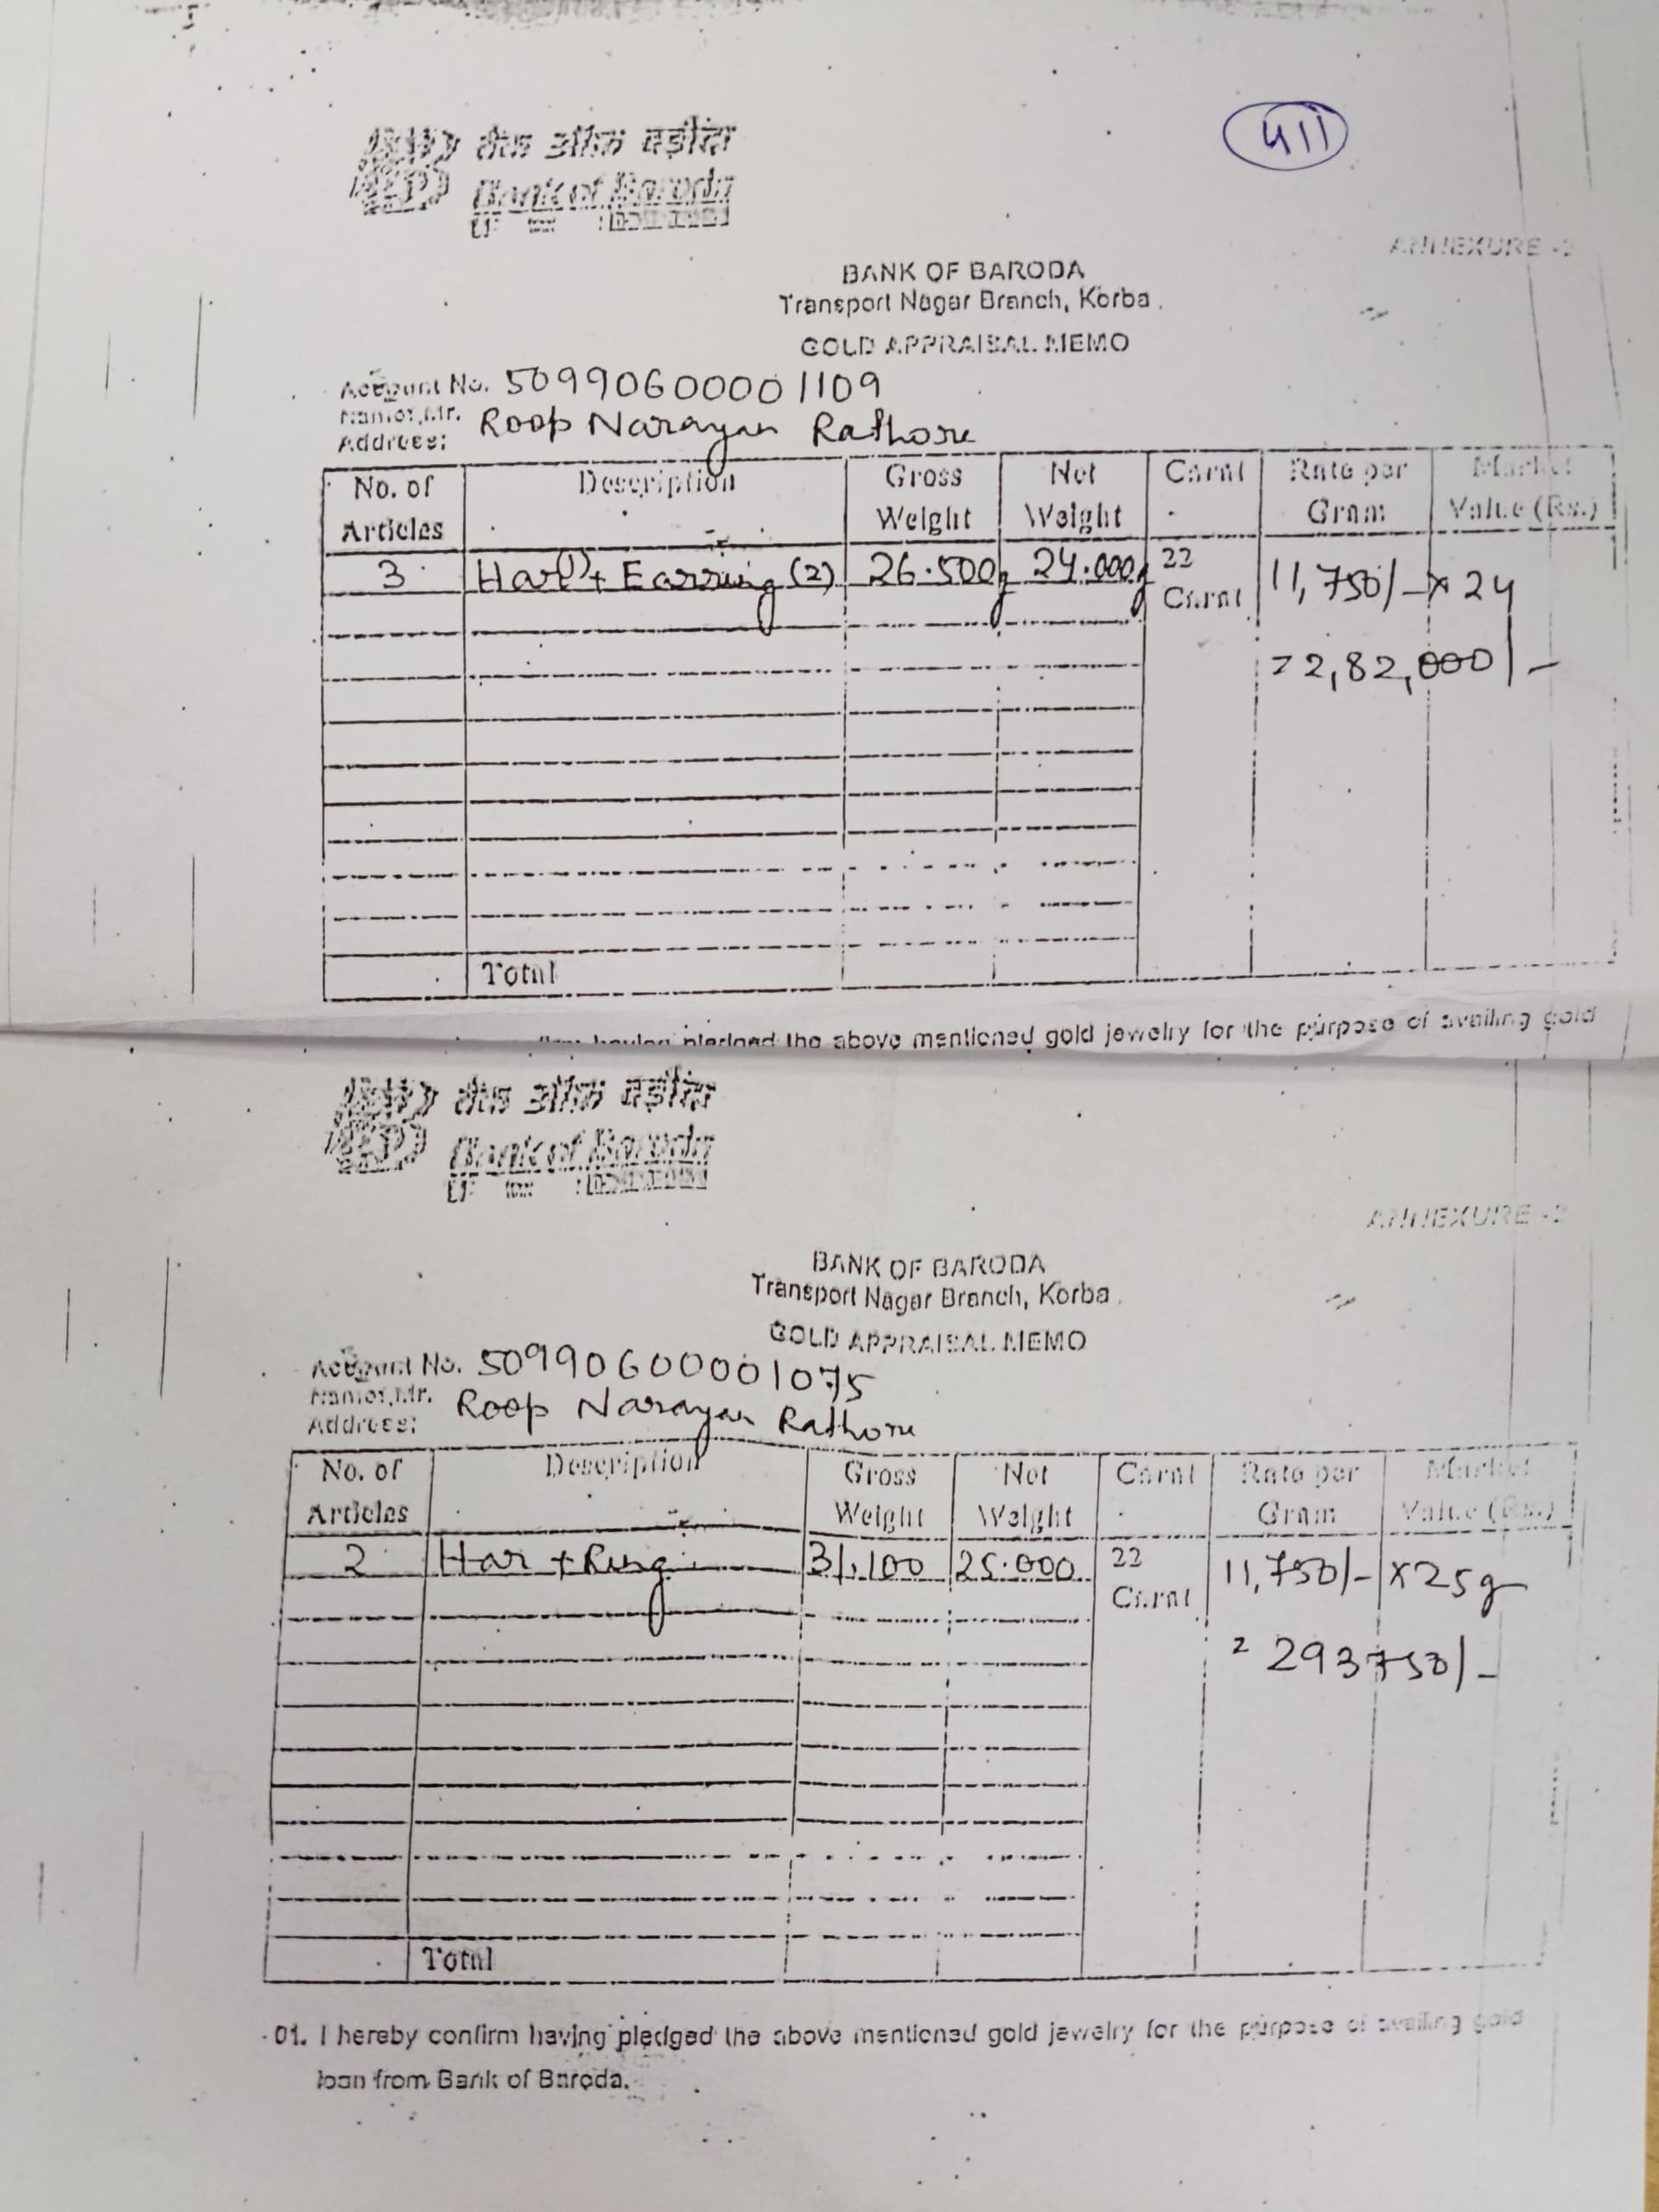 411
बैंक ऑफ़ बड़ौदा
Bank of Baroda
ANNEXURE -2
BANK OF BARODA
Transport Nagar Branch, Korba.
GOLD APPRAISAL MEMO
Account No. 50990600001109
Name: Mr. Roop Narayan Rathore
Address:
No. of Articles Description Gross Weight Net Weight Carat Rate per Gram Market Value (Rs.)
3 Har(1) + Earring (2) 26.500g 24.000g 22 Carat 11,750/- x 24
= 2,82,000/-
Total
pledged the above mentioned gold jewelry for the purpose of availing gold
बैंक ऑफ़ बड़ौदा
Bank of Baroda
ANNEXURE -2
BANK OF BARODA
Transport Nagar Branch, Korba.
GOLD APPRAISAL MEMO
Account No. 50990600001075
Name: Mr. Roop Narayan Rathore
Address:
No. of Articles Description Gross Weight Net Weight Carat Rate per Gram Market Value (Rs.)
2 Har + Ring 31.100 25.000 22 Carat 11,750/- x 25g
= 293750/-
Total
01. I hereby confirm having pledged the above mentioned gold jewelry for the purpose of availing gold
loan from Bank of Baroda.